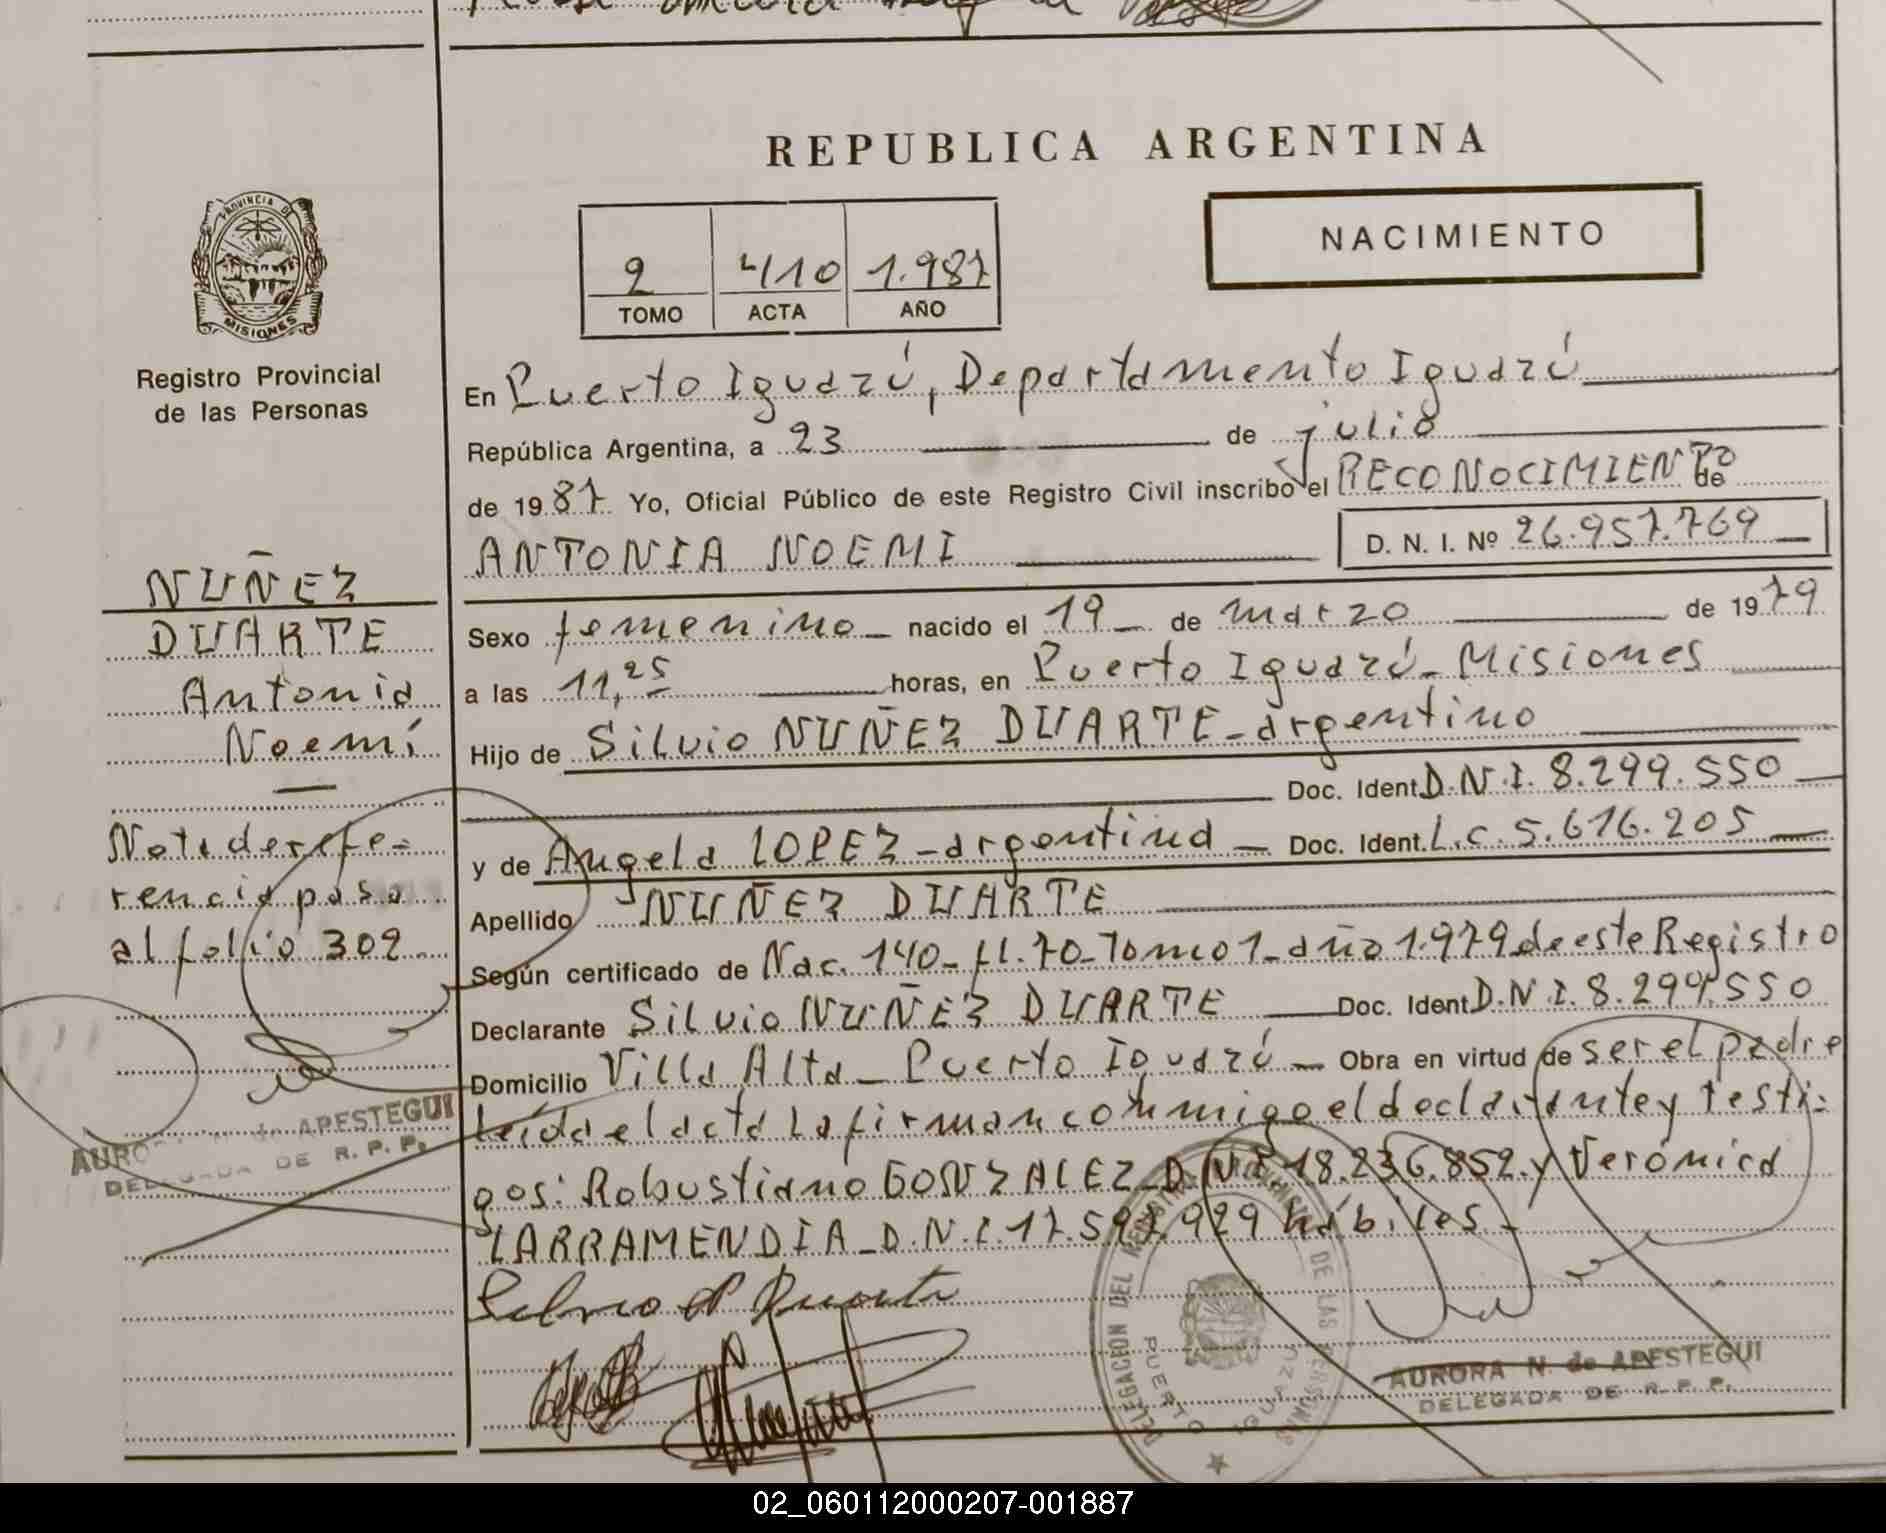 REPUBLICA ARGENTINA
NACIMIENTO
2 410 1.987
TOMO ACTA AÑO
PROVINCIA DE
MISIONES
Registro Provincial
de las Personas
NUÑEZ
DUARTE
Antonia
Noemí
Nota de refe=
rencia pasa
al folio 302
AURO de APESTEGUI
DELEGADA DE R. P. P.
En Puerto Iguazú, Departamento Iguazú
República Argentina, a 23 de julio
de 1987 Yo, Oficial Público de este Registro Civil inscribo el RECONOCIMIENTO de
ANTONIA NOEMI D. N. I. Nº 26.957.769
Sexo femenino nacido el 19 de marzo de 1979
a las 11,25 horas, en Puerto Iguazú - Misiones
Hijo de Silvio NUÑEZ DUARTE - argentino
Doc. Ident. D.N.I. 8.299.550
y de Angela LOPEZ - argentina Doc. Ident. L.C. 5.616.205
Apellido NUÑEZ DUARTE
Según certificado de Nac. 140 - fl. 70 - Tomo 1 - año 1.979 de este Registro
Declarante Silvio NUÑEZ DUARTE Doc. Ident D.N.I. 8.299.550
Domicilio Villa Alta - Puerto Iguazú - Obra en virtud de ser el padre
Leída el acta la firman conmigo el declarante y testi=
gos: Robustiano GONZALEZ - D.N.I. 18.236.852 y Verónica
LARRAMENDIA - D.N.I. 17.597.929 hábiles -
DELEGACION DEL DE LAS PERSONAS
PUERTO IGUAZU
AURORA N. de APESTEGUI
DELEGADA DE R. P. P.
02_060112000207-001887